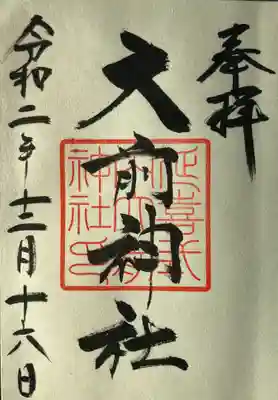 奉拝
大前神社
延喜式
大前
神社印
令和二年十二月十六日